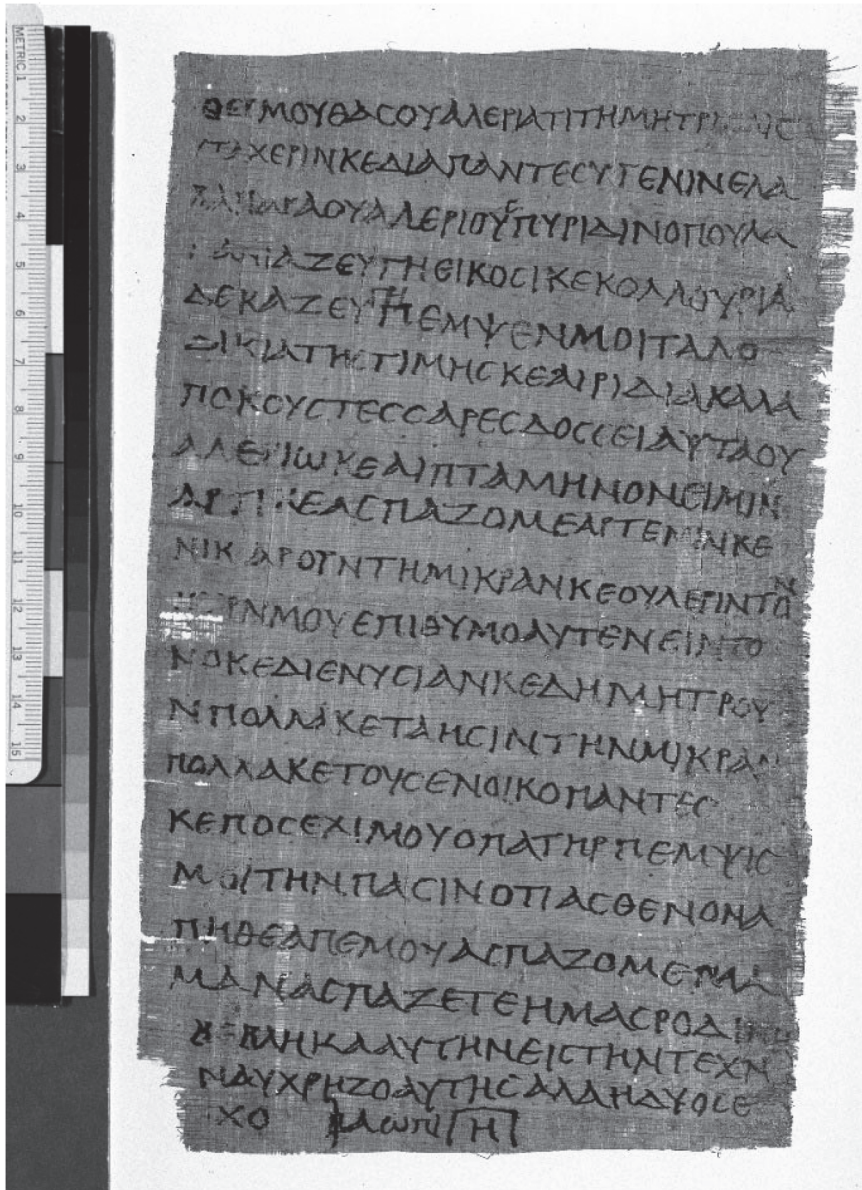 ΘΕΡΜΟΥΘΑCΟΥΑΛΕΡΙΑΤΙΤΗΜΗΤΡΙ
ΧΕΡΙΝΚΕΔΙΑΠΑΝΤΕCΥΓΕΝΙΝΕΛΑ
ΠΑΡΑΟΥΑΛΕΡΙΟΥCΠΥΡΙΔΙΝΟΠΟΥΛΑ
ΖΕΥΓΗΕΙΚΟCΙΚΕΚΟΛΛΟΥΡΙΑ
ΔΕΚΑΖΕΥΓΗΕΜΨΕΝΜΟΙΤΑΛΟ
ΔΙΚΙΑΤΗCΤΙΜΗCΚΕΑΙΡΙΔΙΑΚΑΛΑ
ΠΟΚΟΥCΤΕCCΑΡΕCΔΟCCΕΙΑΥΤΑΟΥ
ΑΛΕΡΙΩΚΕΑΙΠΤΑΜΗΝΟΝΕΙΜΙΝ
ΑΡΤΙΚΕΑCΠΑΖΟΜΕΑΡΤΕΜΙΝΚΕ
ΝΙΚΑΡΟΥΝΤΗΜΙΚΡΑΝΚΕΟΥΛΕΡΙΝΤΩΝ
ΜΟΥΕΠΙΘΥΜΟΑΥΤΕΝΕΙΝΤΟ
ΝΟΚΕΔΙΕΝΥCΙΑΝΚΕΔΗΜΗΤΡΟΥ
ΝΠΟΛΛΑΚΕΤΑΗCΙΝΤΗΝΜΙΚΡΑΝ
ΠΟΛΛΑΚΕΤΟΥCΕΝΟΙΚΟΠΑΝΤΕC
ΚΕΠΟCΕΧΙΜΟΥΟΠΑΤΗΡΠΕΜΨΙC
ΜΟΙΤΗΝΠΑCΙΝΟΠΑCΘΕΝΟΝΑ
ΠΗΘΕΑΠΕΜΟΥΑCΠΑΖΟΜΕ
ΜΑΝΑCΠΑΖΕΤΕΗΜΑCΡΟΔΙΝΗ
ΚΑΑΥΤΗΝΕΙCΤΗΝΤΕΧΝ
ΝΑΥΧΡΗΖΟΑΥΤΗCΑΛΑΗΔΥΟCΕ
ΧΟ ΦΑΩΦΙ Η